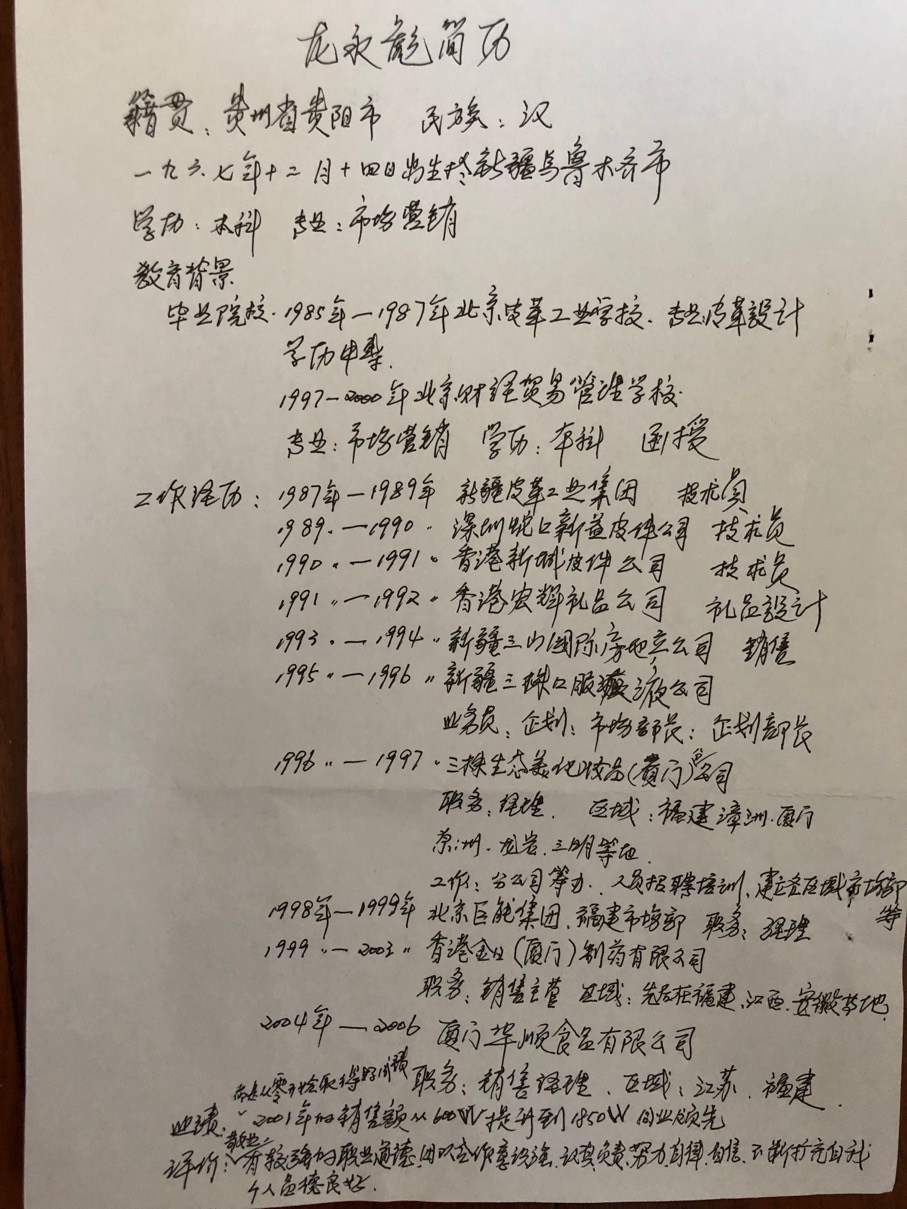 龙永彪简历
籍贯：贵州省贵阳市 民族：汉
一九六七年十二月十四日出生于新疆乌鲁木齐市
学历：本科 专业：市场营销
教育背景
毕业院校·1985年—1987年北京皮革工业学校、专业皮革設计
学历中专.
1997—2000年北京财经贸易管理学校
专业：市场营销 学历：本科 函授
工作经历：1987年—1989年 新疆皮革工业集团 技术员
1989〃—1990〃 深圳蛇口新益皮件公司 技术员
1990〃—1991〃 香港新城皮件公司 技术员
1991〃—1992〃 香港宏辉礼品公司 礼品設计
1993〃—1994〃 新疆三山国际房地产公司 銷售
1995〃—1996〃 新疆三株口服液公司
业务员、企划、市场部长、企划部长
1996〃—1997〃 三株生态美化妆品(厦门)公司
职务：经理. 区域：福建漳洲.厦门
泉洲.龙岩.三明等地.
工作：分公司筹办、人员招聘培训、建立各区域市场部
等
1998年—1999年 北京巨能集团、福建市场部 职务：经理
1999〃—2003〃 香港金日(厦门)制药有限公司
职务：销售主管 区域：先后在福建、江西、安徽等地.
2004年—2006 厦门华顺食品有限公司
职务：销售经理、区域：江苏、福建
业绩：2001年的销售额从600W提升到1850W 同业领先
评价：有较强的职业道德、团队合作意识强、认真负责、努力、自律、自信、不断扩充自我
个人品德良好.